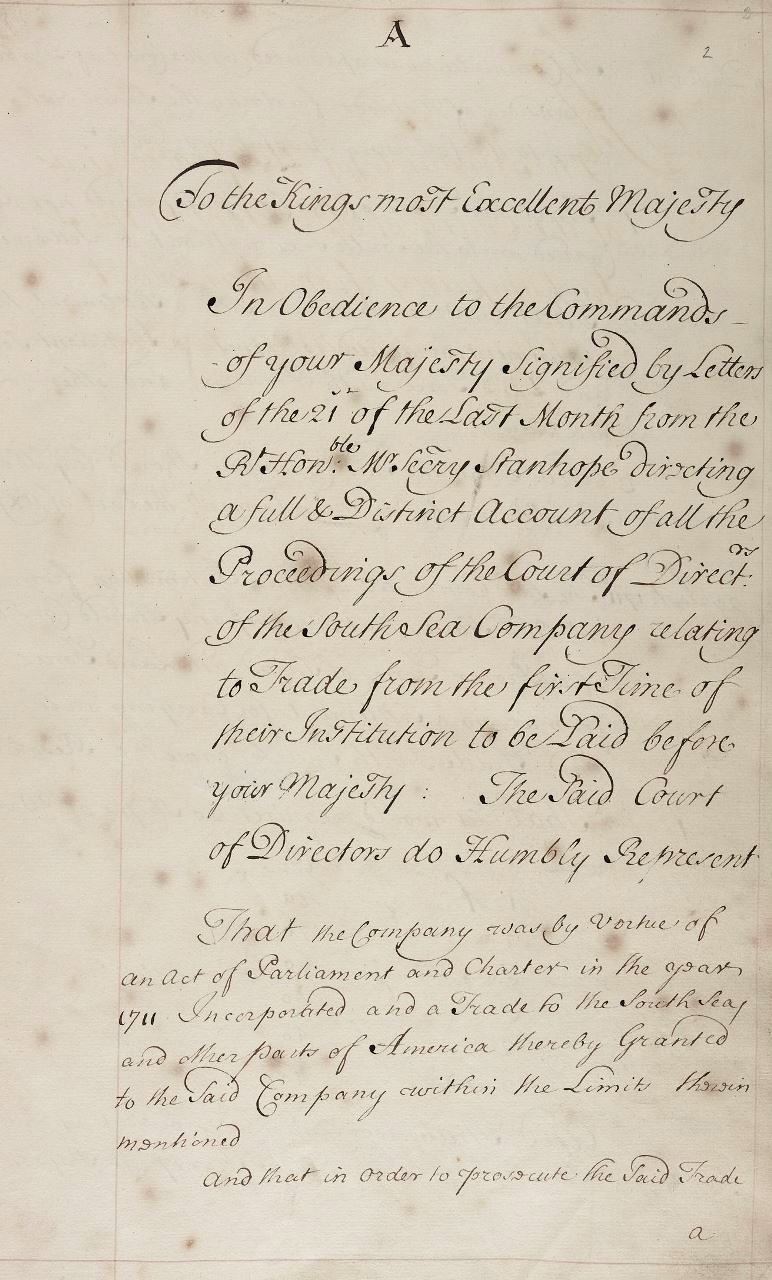 A
2
To the Kings most Excellent Majesty
In Obedience to the Commands
of your Majesty Signified by Letters
of the 21st of the Last Month from the
Rt Honble: Mr Secry Stanhope directing
a full & Distinct Account of all the
Proceedings of the Court of Directrs:
of the South Sea Company relating
to Trade from the first Time of
their Institution to be Laid before
your Majesty : The Said Court
of Directors do Humbly Represent
That the Company was by Vertue of
an Act of Parliament and Charter in the year
1711 Incorporated and a Trade to the South Sea,
and other parts of America thereby Granted
to the Said Company within the Limits therein
mentioned
And that in order to prosecute the Said Trade
a